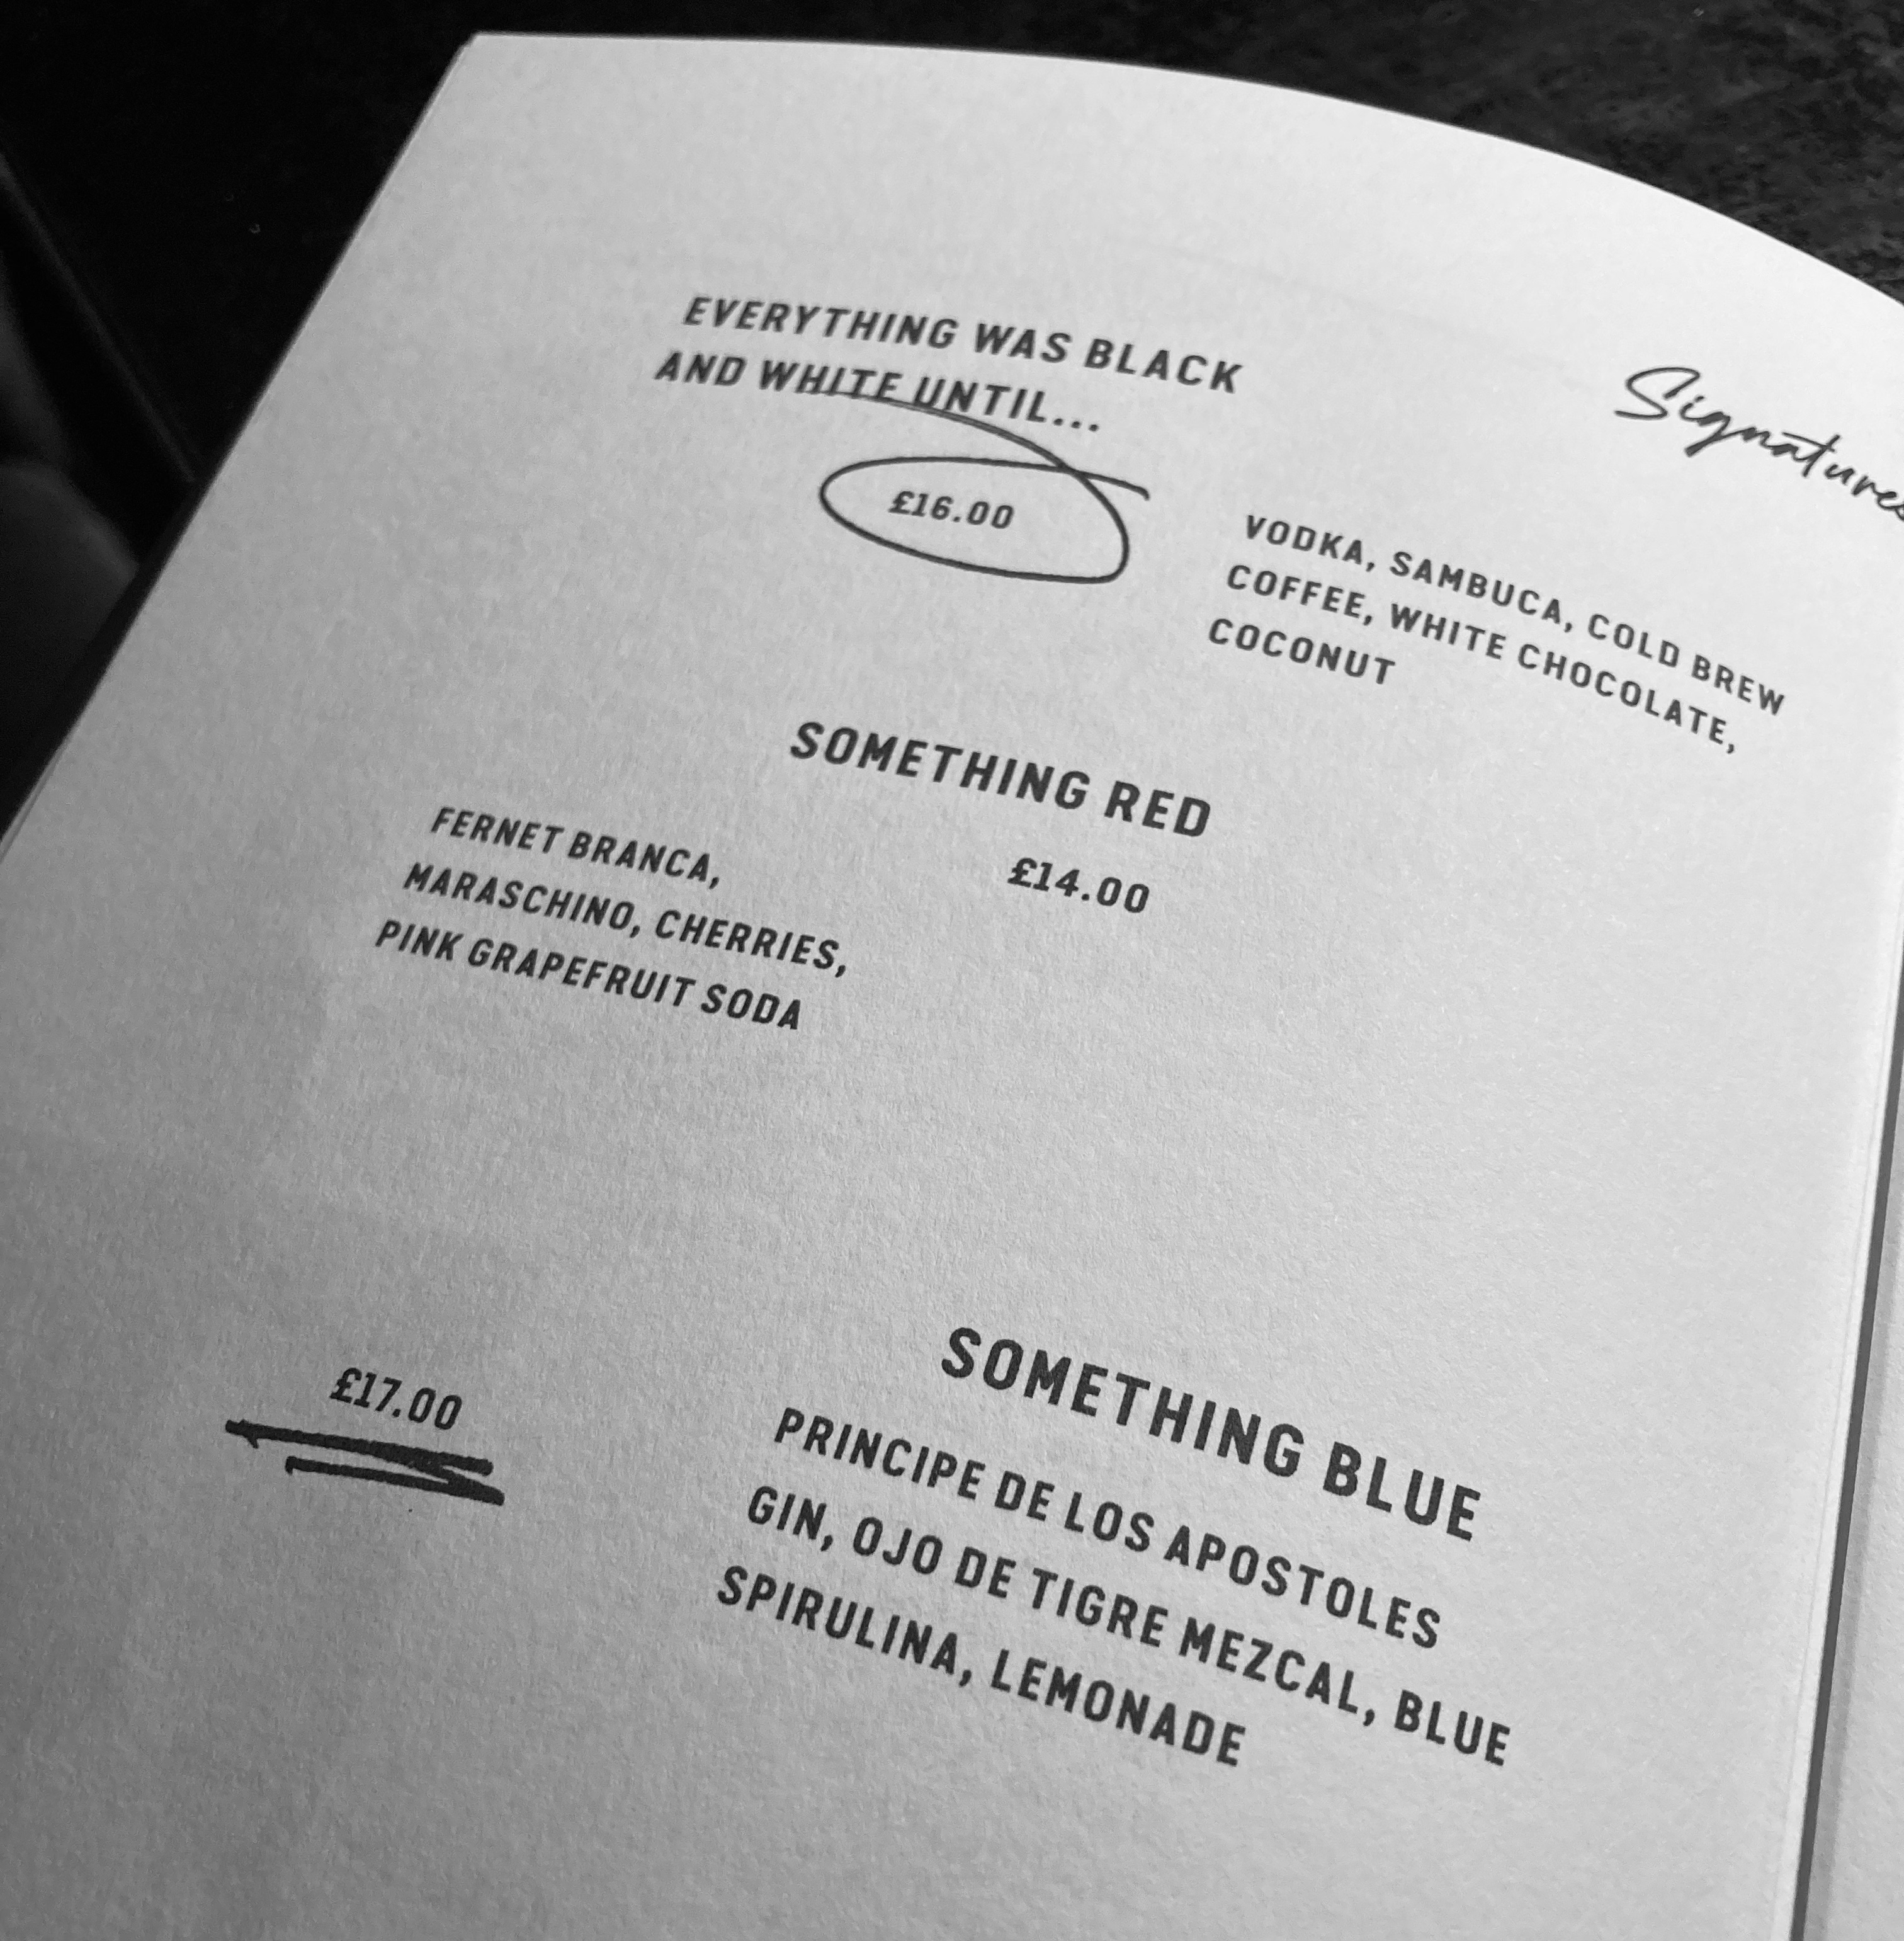 Signatures
EVERYTHING WAS BLACK
AND WHITE UNTIL...
£16.00
VODKA, SAMBUCA, COLD BREW
COFFEE, WHITE CHOCOLATE,
COCONUT
SOMETHING RED
£14.00
FERNET BRANCA,
MARASCHINO, CHERRIES,
PINK GRAPEFRUIT SODA
SOMETHING BLUE
£17.00
PRINCIPE DE LOS APOSTOLES
GIN, OJO DE TIGRE MEZCAL, BLUE
SPIRULINA, LEMONADE